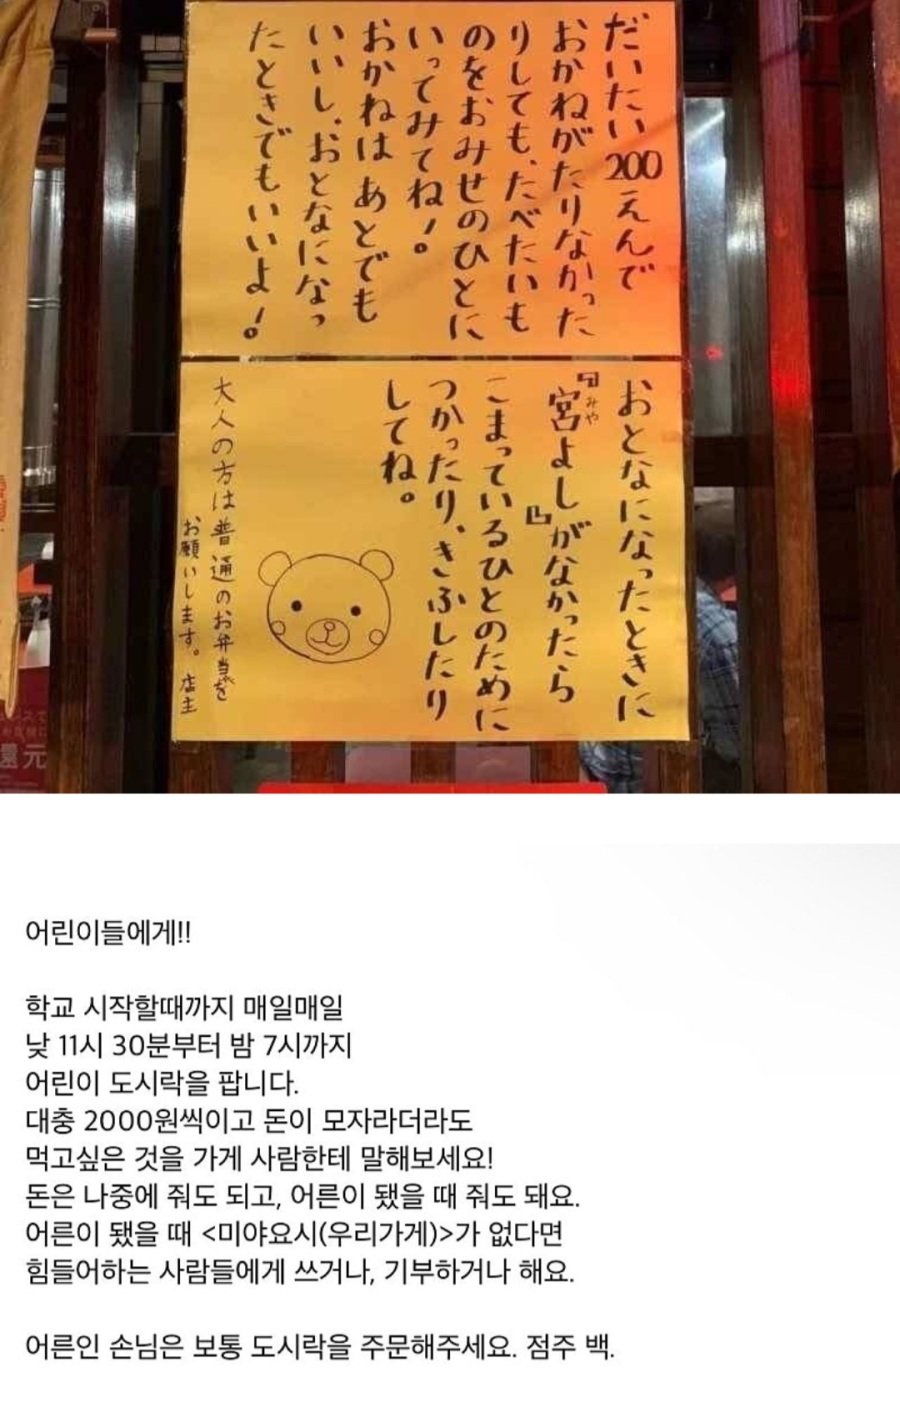 だいたい200えんで
おかねがたりなかった
りしても、たべたいも
のをおみせのひとに
いってみてね！
おかねは あとでも
いいし、おとなになっ
たときでもいいよ！
おとなになったときに
『宮よし』がなかったら
みや
こまっているひとのために
つかったり、きふしたり
してね。
大人の方は普通のお弁当を
お願いします。店主
還元
어린이들에게!!
학교 시작할때까지 매일매일
낮 11시 30분부터 밤 7시까지
어린이 도시락을 팝니다.
대충 2000원씩이고 돈이 모자라더라도
먹고싶은 것을 가게 사람한테 말해보세요!
돈은 나중에 줘도 되고, 어른이 됐을 때 줘도 돼요.
어른이 됐을 때 <미야요시(우리가게)>가 없다면
힘들어하는 사람들에게 쓰거나, 기부하거나 해요.
어른인 손님은 보통 도시락을 주문해주세요. 점주 백.